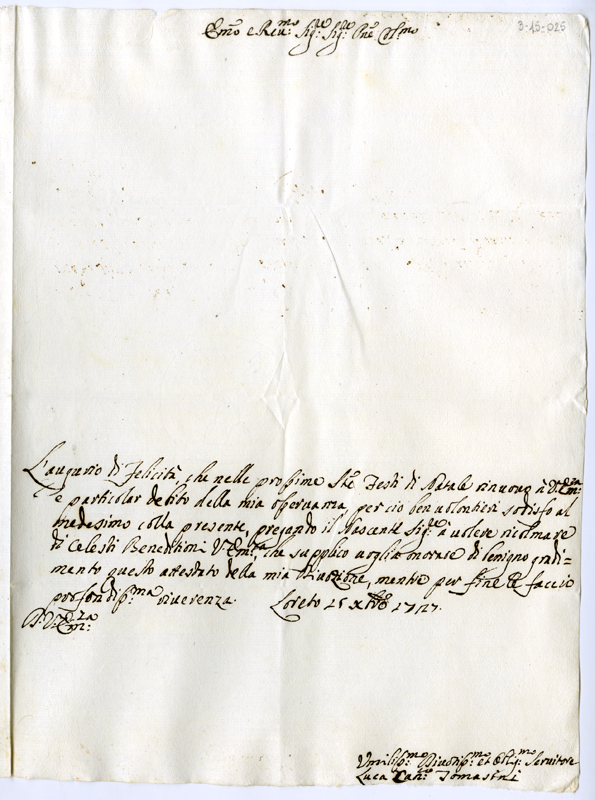 3-15-025
Emõ e Reu:mo Sig:re Sig:re Pñe Col:mo
L'augurio di Felicità, che nelle prossime Ste Feste di Natale rinuouo à V: Em:za
è particolar debito della mia osseruanza, per ciò ben uolontieri sodisfo al
medesimo colla presente, pregando il Nascente Sig:re à uolere ricolmare
di Celesti Benedittioni V: Em:za, che supplico uoglia honorare di benigno gradi=
mento questo attestato della mia Diuozione, mentre per fine Le faccio
profondiss:ma riuerenza. Loreto 15 Xbre 1727.
D. V: Em:za
Vmiliss:mo Diuotiss:mo et Oblig:mo Seruitore
Luca Can:co Tomasini